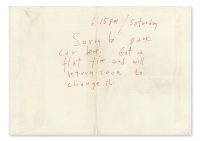 6:15 PM / Saturday
Sorry to park
car here. Got a
flat tire and will
return soon to
change it